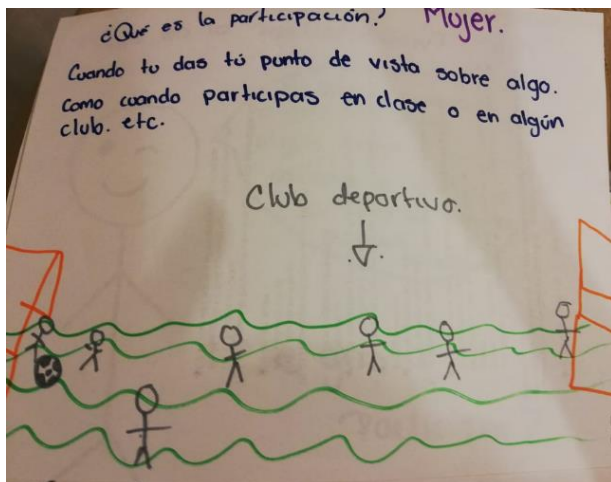 ¿Qué es la participación? Mujer.
Cuando tu das tú punto de vista sobre algo.
Como cuando participas en clase o en algún
club. etc.
Club deportivo.